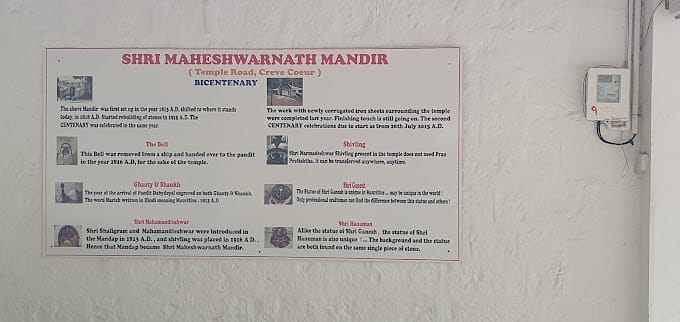 SHRI MAHESHWARNATH MANDIR
( Temple Road, Creve Coeur )
BICENTENARY
The above Mandir was first set up in the year 1813 A.D. shifted to where it stands
today, in 1818 A.D. Started rebuilding of stones in 1915 A.D. The
CENTENARY was celebrated in the same year.
The work with newly corrugated iron sheets surrounding the temple
were completed last year. Finishing touch is still going on. The second
CENTENARY celebrations due to start as from 26th July 2015 A.D.
The Bell
This Bell was removed from a ship and handed over to the pandit
in the year 1916 A.D, for the sake of the temple.
Shivling
Shri Narmadeshwar Shivling present in the temple does not need Pran
Pratishtha. It can be transferred anywhere, anytime.
Ghanty & Shankh
The year of the arrival of Pandit engraved on both Ghanty & Shankh.
The word Marich written in Hindi meaning Mauritius - 1813 A.D
Shri Ganesh
The Statue of Shri Ganesh is unique in Mauritius ... may be unique in the world !
Only professional craftsman can find the difference between this statue and others !
Shri Mahamandleshwar
Shri Shaligram and Mahamandleshwar were introduced in
the Mandap in 1813 A.D. , and shivling was placed in 1916 A.D .
Hence that Mandap became Shri Maheshwarnath Mandir.
Shri Hanuman
Alike the statue of Shri Ganesh , the statue of Shri
Hanuman is also unique ! ... The background and the statue
are both found on the same single piece of stone.
9